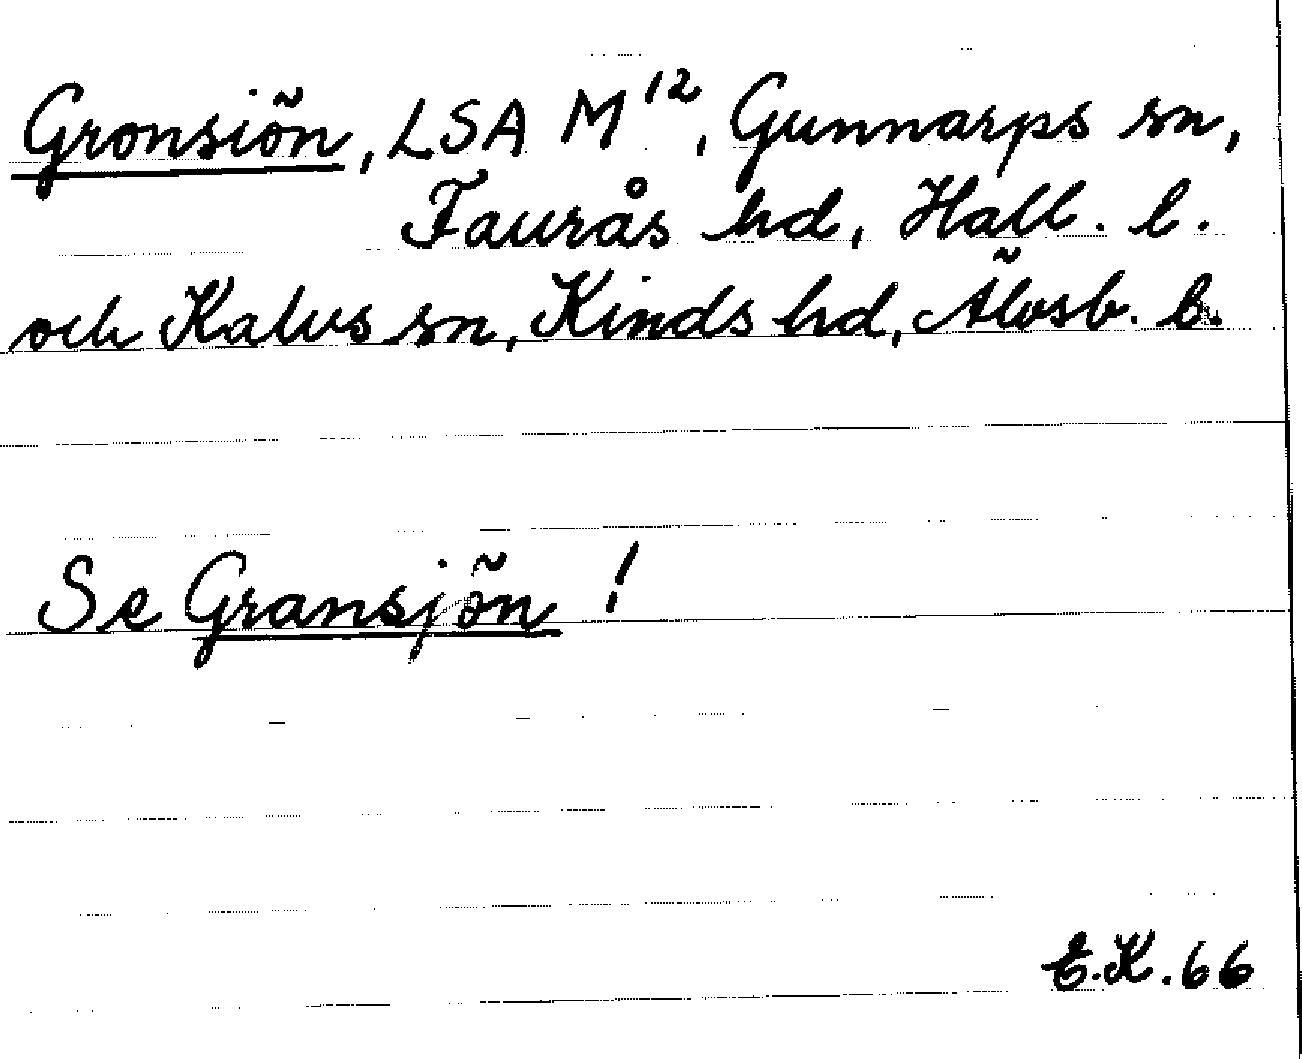 Gronsiön, LSA M¹², Gunnarps sn,
Faurås hd, Hall. l.
och Kalvs sn, Kinds hd, Älvsb. l.
Se Gransjön!
E.K. 66